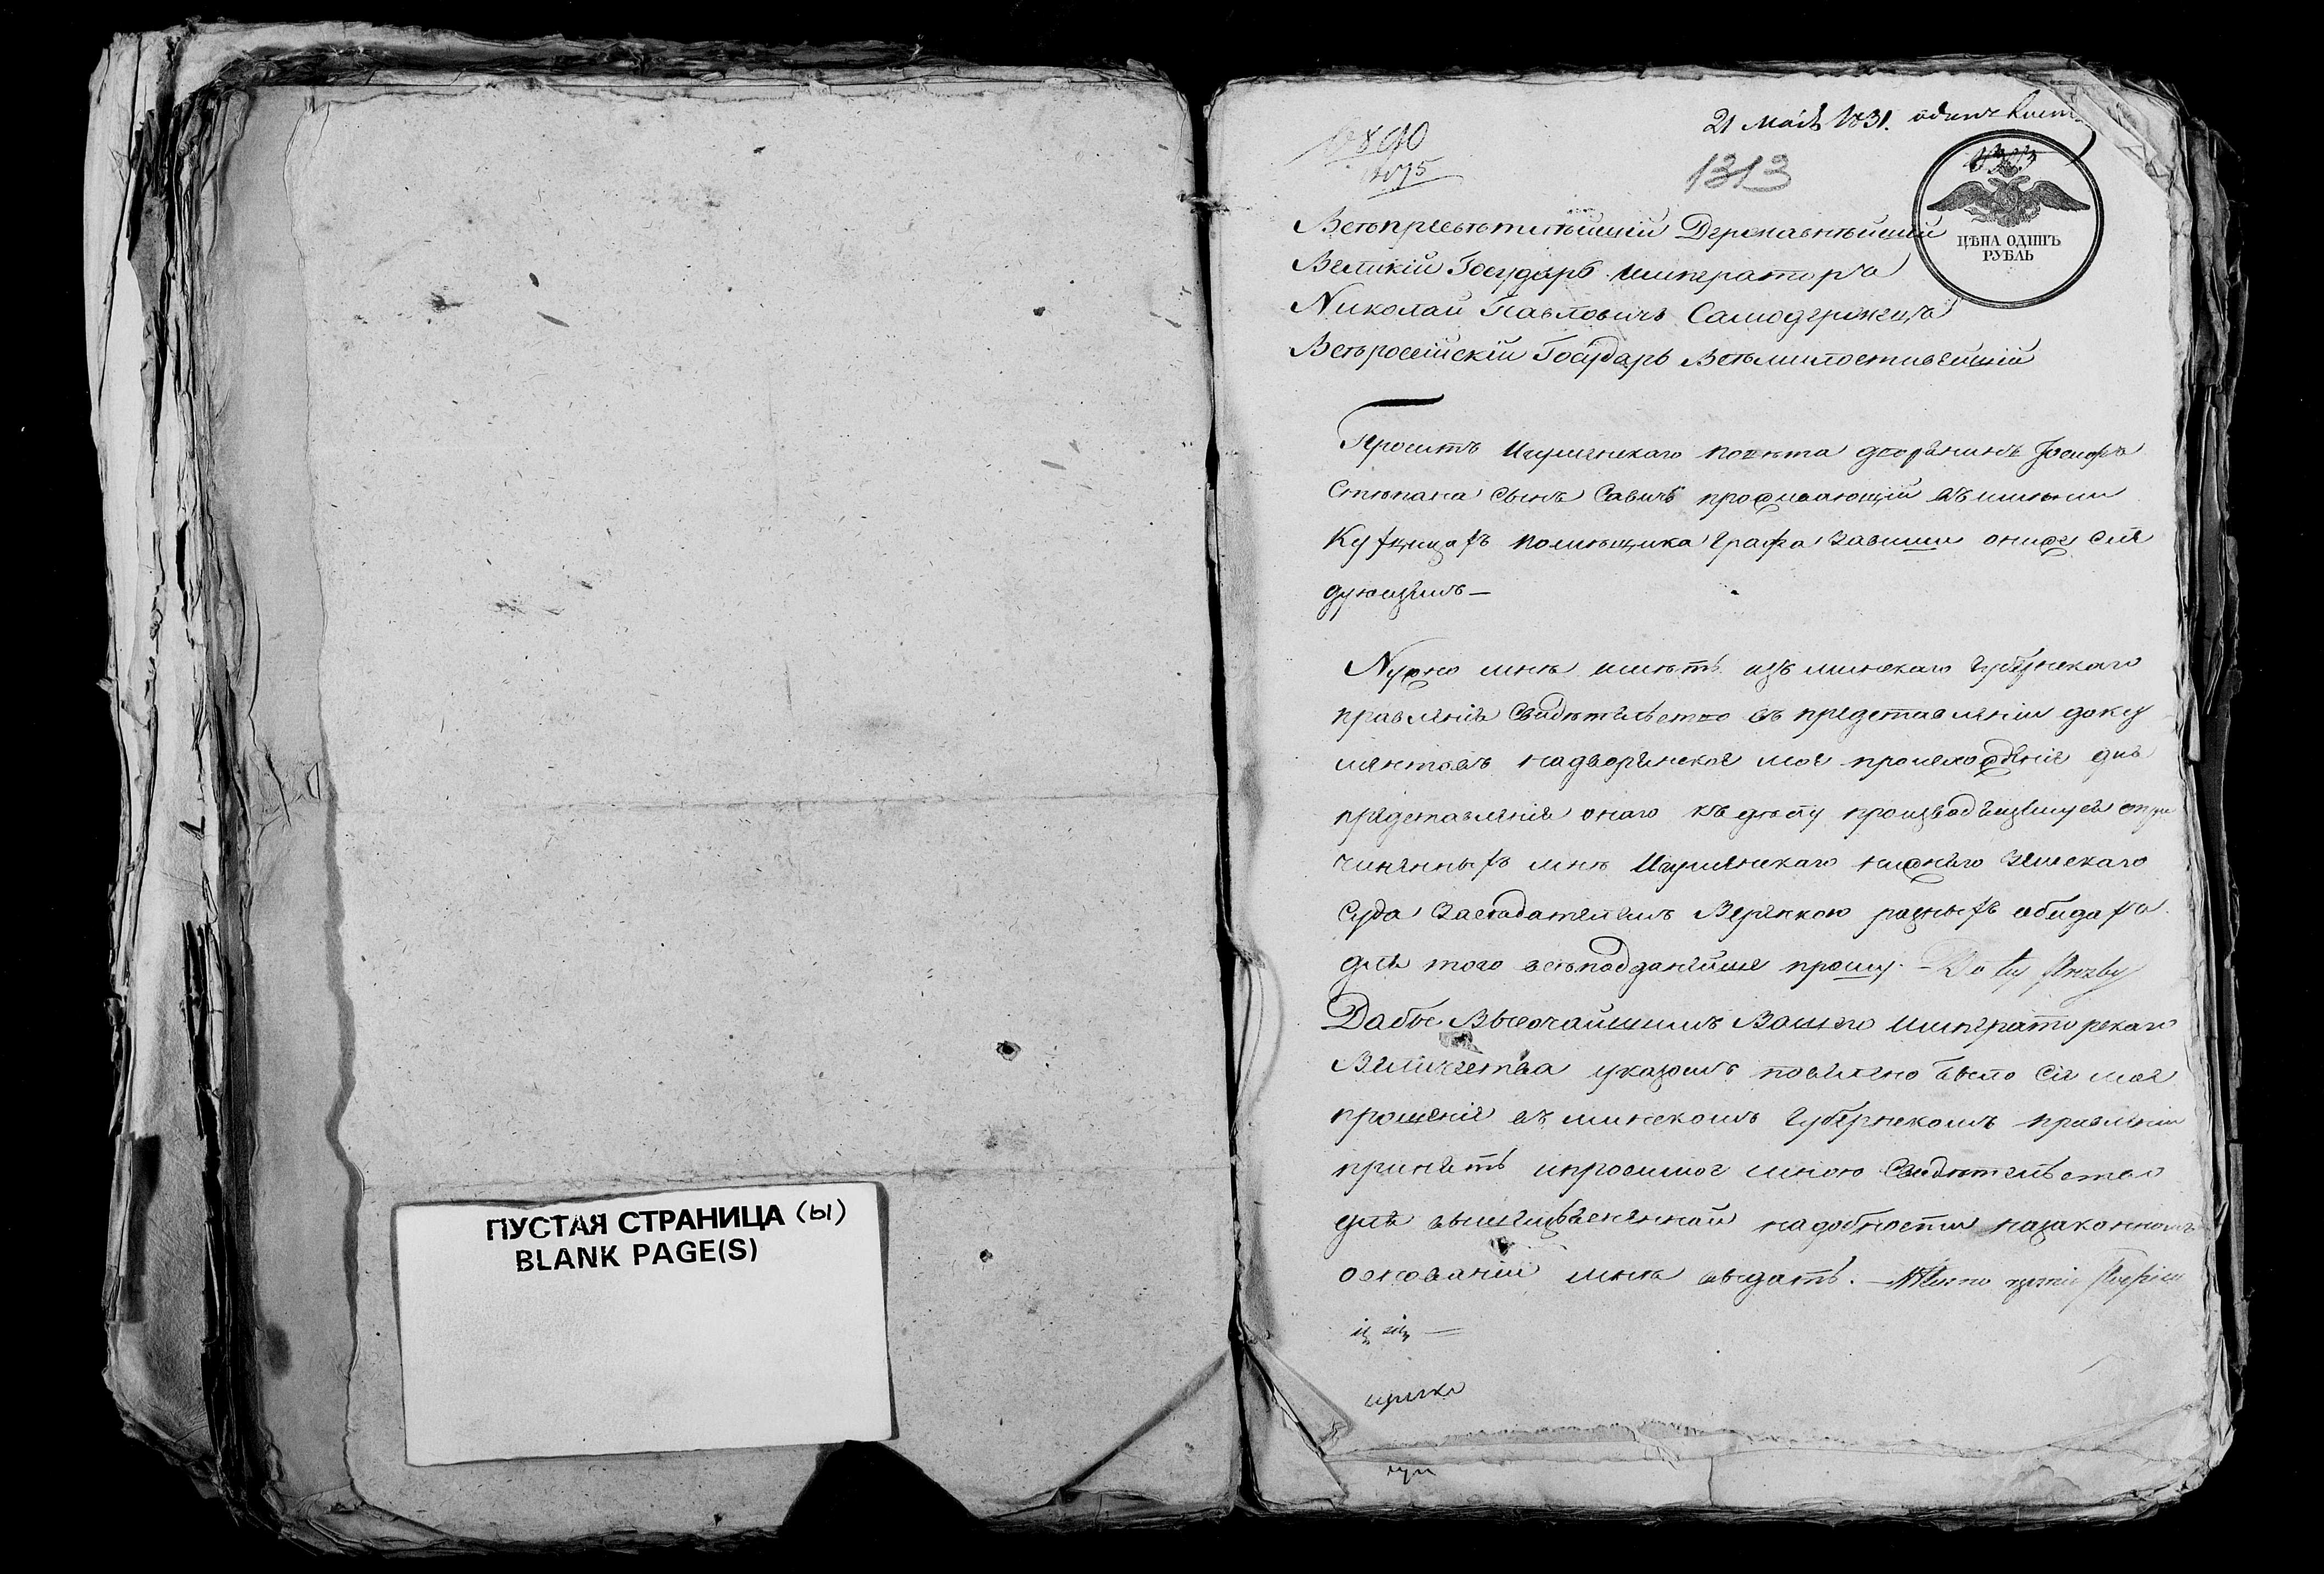 ПУСТАЯ СТРАНИЦА (ы)
BLANK PAGE(S)
21 Маія 1831. одинъ листъ
10890
1313
ЦѢНА ОДИНЪ
РУБЛЬ
Всѣпресвѣтлѣйшій Державнѣйшій
Великій Государь Императоръ
Николай Павловичъ Самодержецъ
Всѣросійскій Государь Всѣмилостивейшій
Проситъ Игуменскаго повѣта дворянинъ Іосифъ
Стѣпана Сынъ Савичъ проживающій въ имѣнии
помѣщика Графа Завиши онижеслѣ
дующемъ —
Нужно мнѣ имѣть изъ минскаго Губернскаго
правленія Свидѣтельство въ представленіи доку
ментовъ надворянское мое происхожденіе для
представленія онаго къ дѣлу производящемуся
чиненныхъ мнѣ Игуменскаго нижняго Земскаго
Суда Заседателемъ разныхъ обидахъ
для того всѣподданейше прошу. — Do tey
Дабы Высочайшимъ Вашего Императорскаго
Величества указомъ повелено было сіе мое
прошеніе въ минскомъ Губернскомъ правленіи
принять ипросимое мною Свидѣтельство
для вышеизъясненной надобности назаконномъ
основаніи мнѣ выдать. —